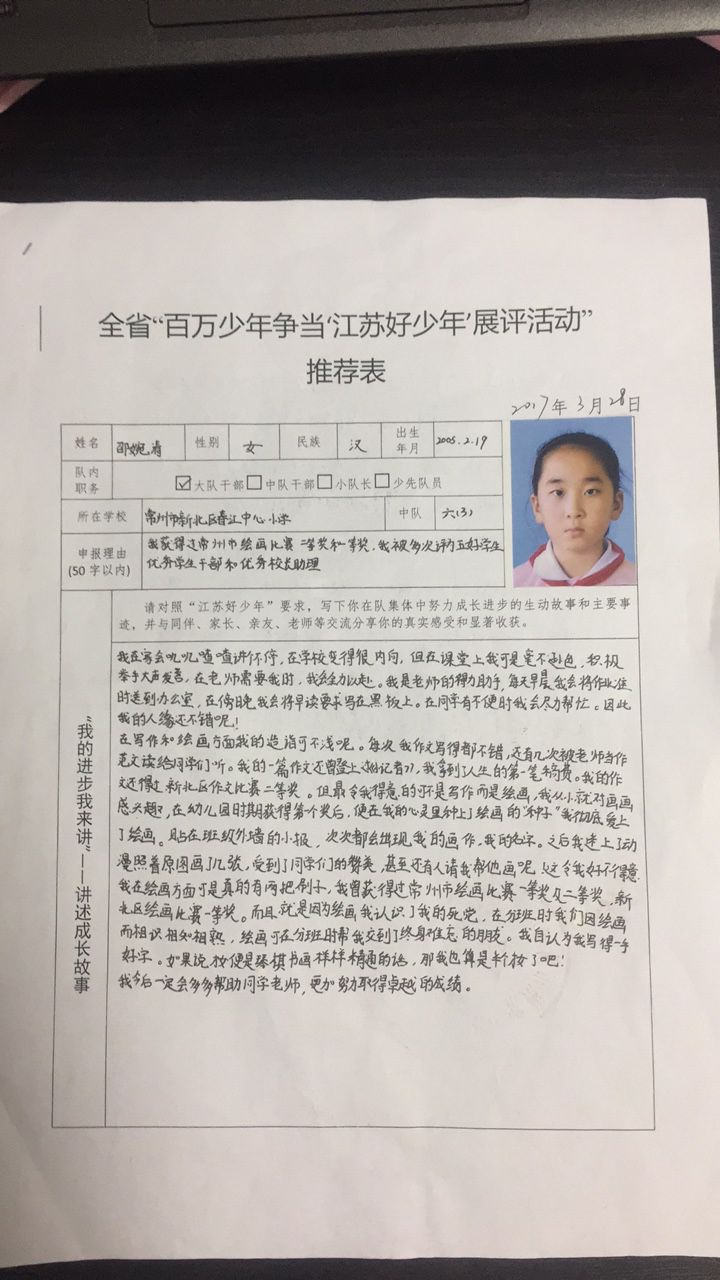 全省“百万少年争当‘江苏好少年’展评活动”
推荐表
2017年3月28日
姓名 邵婉清 性别 女 民族 汉 出生年月 2005.2.19
队内职务 ☑大队干部□中队干部□小队长□少先队员
所在学校 常州市新北区春江中心小学 中队 六(3)
申报理由(50字以内) 我获得过常州市绘画比赛二等奖和一等奖,我被多次评为五好学生
优秀学生干部和优秀校长助理
请对照“江苏好少年”要求,写下你在队集体中努力成长进步的生动故事和主要事
迹,并与同伴、家长、亲友、老师等交流分享你的真实感受和显著收获。
“我的进步我来讲”——讲述成长故事
我在家会叽叽喳喳讲个不停,在学校变得很内向,但在课堂上我可是毫不逊色,积极
举手大声发言,在老师需要我时,我会全力以赴。我是老师的得力助手,每天早晨我会将作业准
时送到办公室,在傍晚我会将早读要求写在黑板上。在同学有不便时我会尽力帮忙。因此
我的人缘还不错呢!
在写作和绘画方面我的造诣可不浅呢。每次我作文写得都不错,还有几次被老师当作
范文读给同学们听。我的一篇作文还曾登上《小记者》,我拿到了人生的第一笔稿费。我的作
文还得过新北区作文比赛二等奖。但最令我得意的可不是写作而是绘画,我从小就对画画
感兴趣,在幼儿园时期获得第一个奖后,便在我的心灵里种上了绘画的“种子”我彻底爱上
了绘画。贴在班级外墙的小报,次次都会出现我的画作,我的名字。之后我迷上了动
漫照着原图画了几张,受到了同学们的赞美,甚至还有人请我帮他画呢!这令我好不得意.
我在绘画方面可是真的有两把刷子,我曾获得过常州市绘画比赛一等奖及二等奖,新
北区绘画比赛一等奖。而且就是因为绘画我认识了我的死党,在分班时我们因绘画
而相识相知相熟,绘画可在分班时帮我交到了终身难忘的朋友。我自认为我写得一手
好字。如果说,妆便是琴棋书画样样精通的话,那我也算是半个妆了吧!
我今后一定会多多帮助同学老师,更加努力取得卓越的成绩。